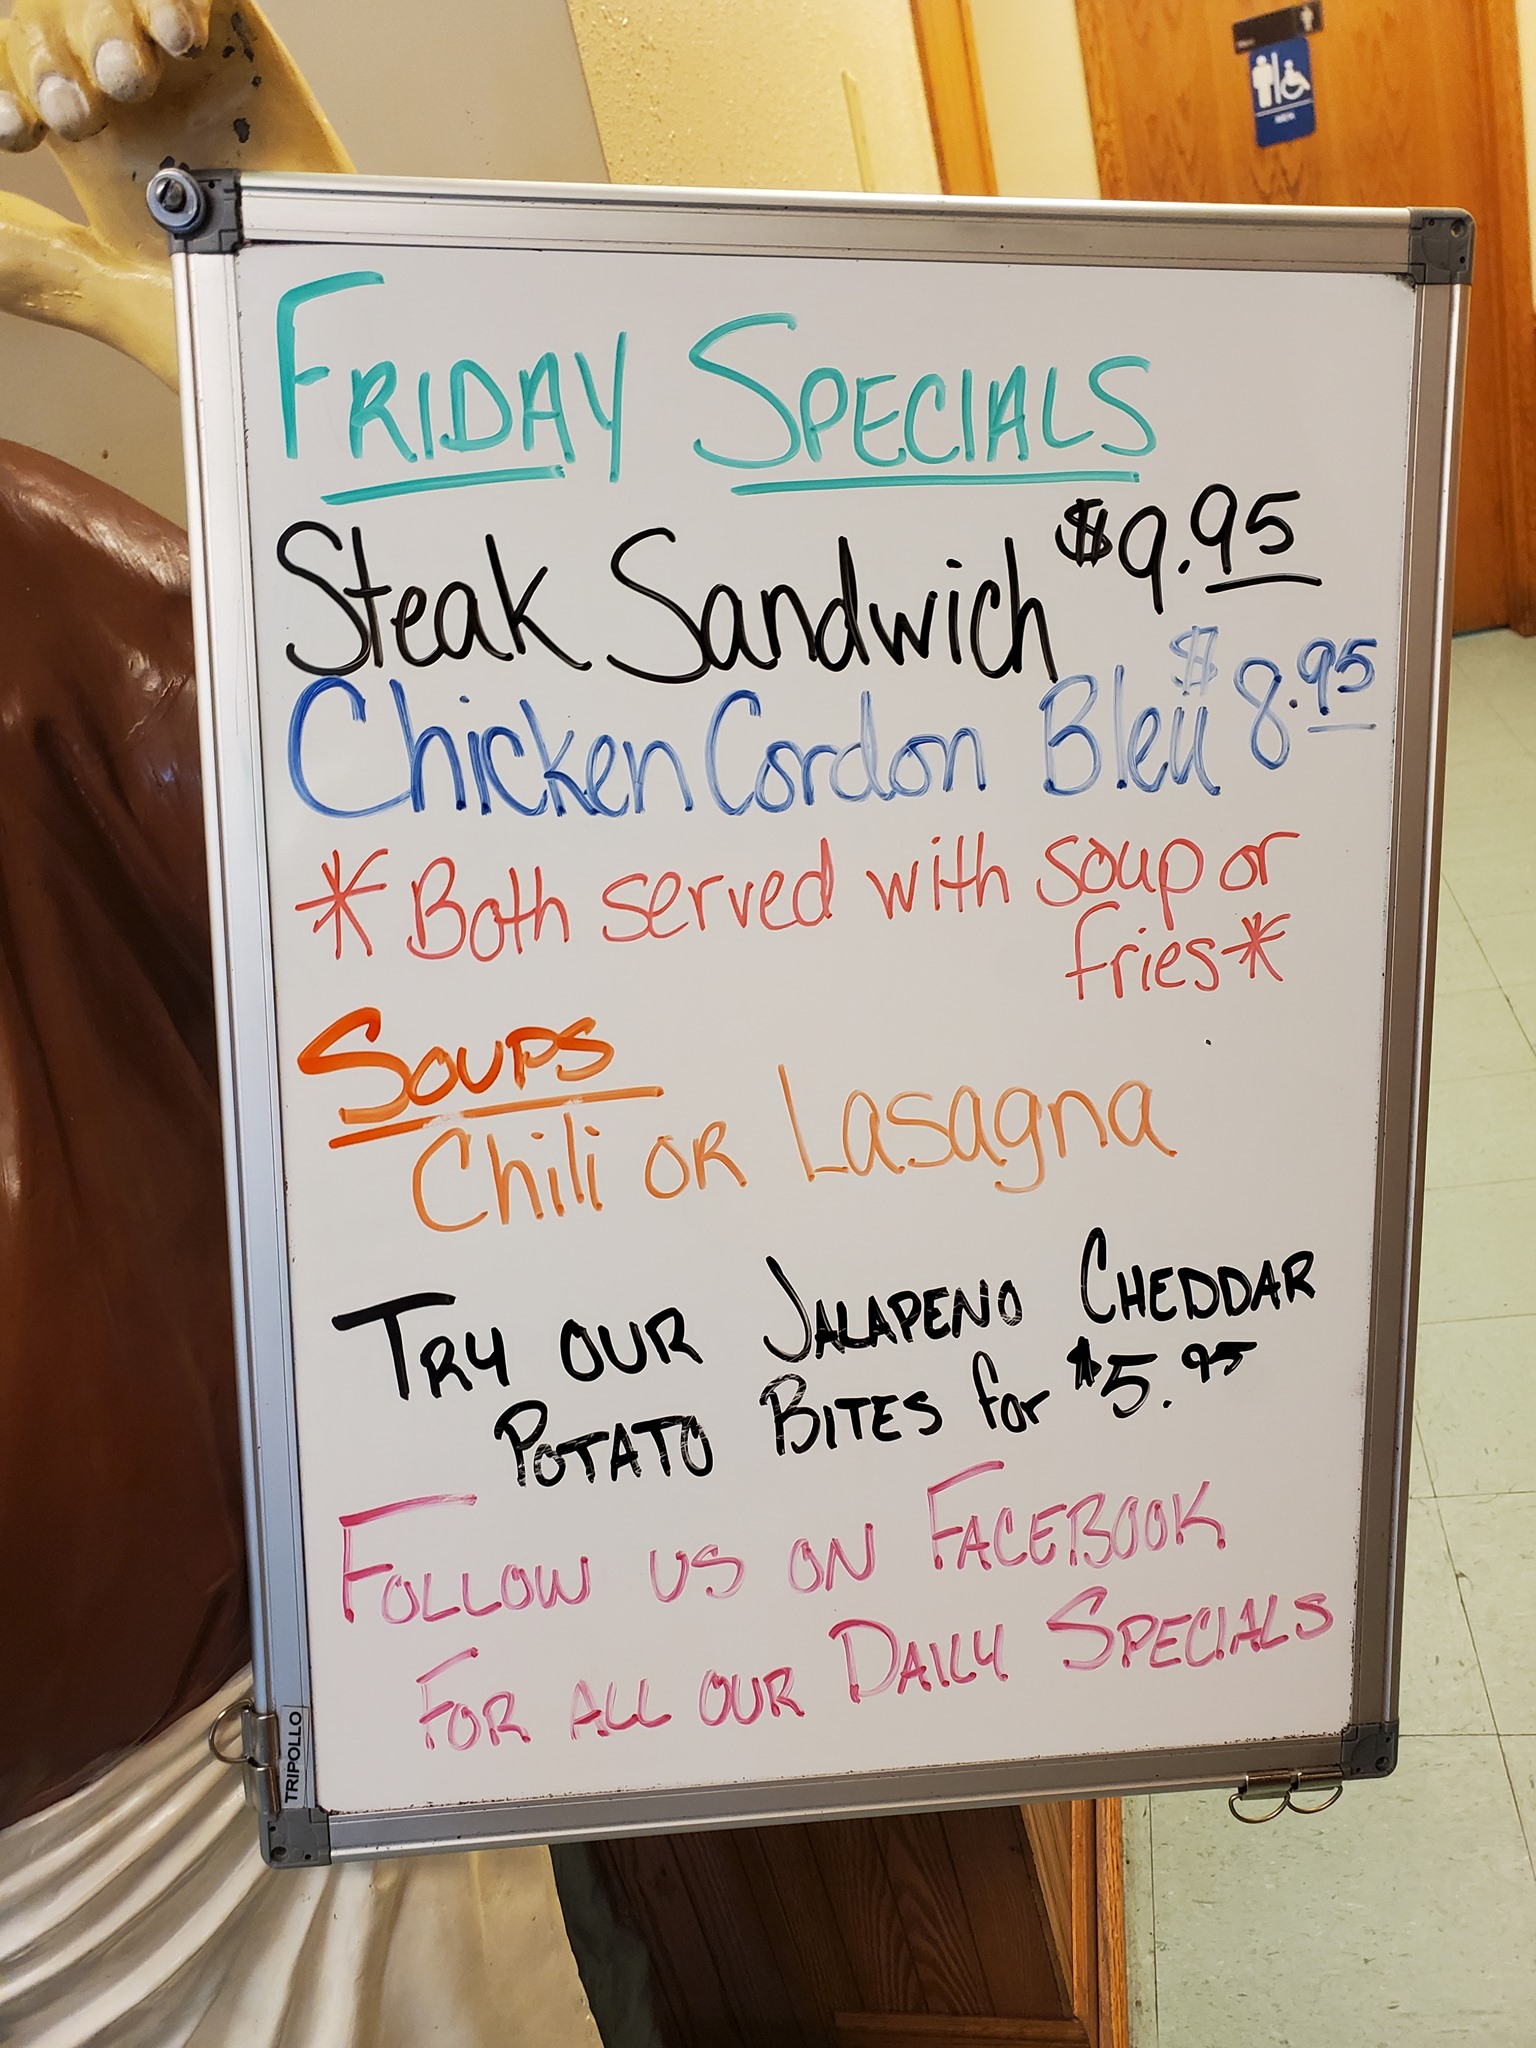 MEN
FRIDAY SPECIALS
Steak Sandwich $9.95
Chicken Cordon Bleu $8.95
*Both served with soup or
fries*
SOUPS
Chili OR Lasagna
TRY OUR JALAPENO CHEDDAR
POTATO BITES for $5.95
FOLLOW US ON FACEBOOK
FOR ALL OUR DAILY SPECIALS
TRIPOLLO